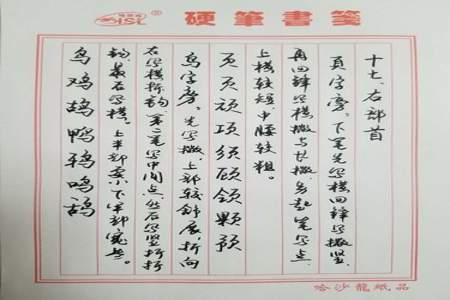 硬筆書箋
十七、右部首
頁字旁。下笔先写横回锋写撇竖
再回锋写横撇与长撇,
上横较短,中腰较粗。
页页顽项须颐领颗预
鸟字旁。先写撇,上部较舒展,折向
右写横折钩第二笔写中间点,然后写竖折折
钩,最后写横。上半部要小下半部宽
鸟鸡鸪鸭鸦鸣鹄
哈沙龍紙品